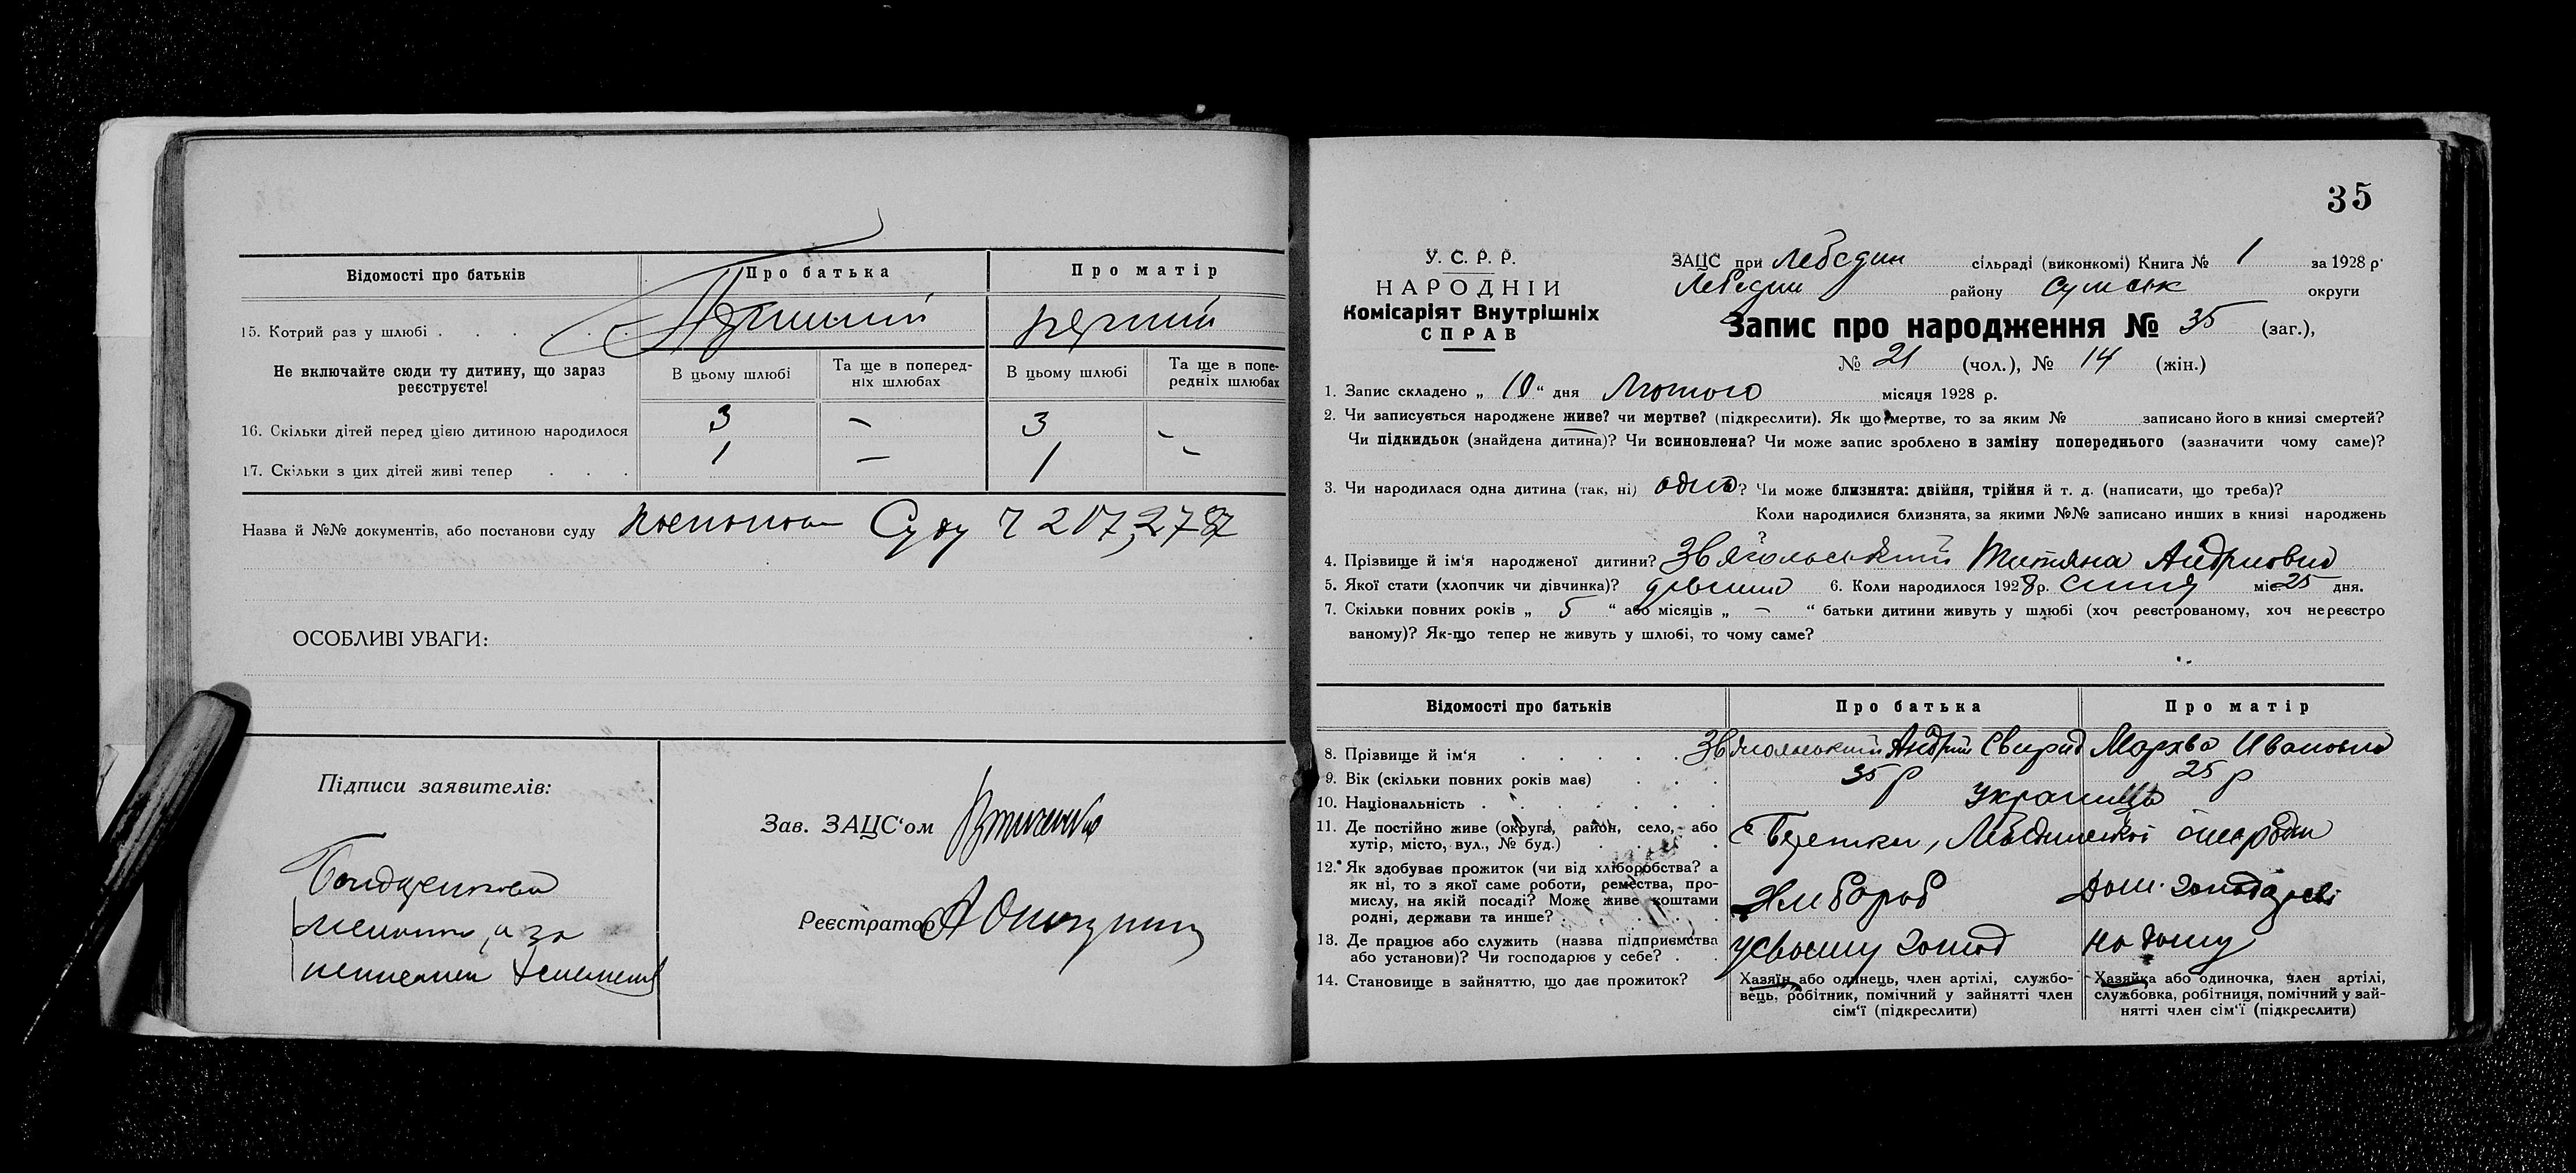 Відомості про батьків Про батька Про матір
15. Котрий раз у шлюбі . . . . . . Перший перший
Не включайте сюди ту дитину, що зараз реєструєте!
В цьому шлюбі Та ще в поперед-ніх шлюбах В цьому шлюбі Та ще в попе-редніх шлюбах
16. Скільки дітей перед цією дитиною народилося 3 — 3 -
17. Скільки з цих дітей живі тепер . . . 1 — 1 -
Назва й №№ документів, або постанови суду Суду
ОСОБЛИВІ УВАГИ:
Підписи заявителів:
Зав. ЗАЦС‘ом
Реєстратор
35
У. С. Р. Р.
НАРОДНІЙ
Комісаріят Внутрішніх
СПРАВ
ЗАЦС при Лебедин сільраді (виконкомі) Книга № 1 за 1928 р.
Лебедин району Сумськ округи
Запис про народження № 35 (заг.),
№ 21 (чол.), № 14 (жін.)
1. Запис складено „ 10 “ дня Лютого місяця 1928 р.
2. Чи записується народжене живе? чи мертве? (підкреслити). Як що мертве, то за яким № записано його в книзі смертей?
Чи підкидьок (знайдена дитина)? Чи всиновлена? Чи може запис зроблено в заміну попереднього (зазначити чому саме)?
3. Чи народилася одна дитина (так, ні) одна? Чи може близнята: двійня, трійня й т. д. (написати, що треба)?
Коли народилися близнята, за якими №№ записано инших в книзі народжень
4. Прізвище й ім‘я народженої дитини? Звягольський Титяна Андриовна
5. Якої статі (хлопчик чи дівчинка)? 6. Коли народилося 1928 р. міс. 25 дня.
7. Скільки повних років „ 5 “ або місяців „ — “ батьки дитини живуть у шлюбі (хоч реєстрованому, хоч нереєстро
ваному)? Як-що тепер не живуть у шлюбі, то чому саме?
Відомості про батьків Про батька Про матір
8. Прізвище й ім‘я . . . . . Звягольський Андрій Свирид Мархва Ивановна
9. Вік (скільки повних років має) . . . 35 р 25 р
10. Національність . . . . . . . Украинць
11. Де постійно живе (округа, район, село, або
хутір, місто, вул., № буд.) . . .
12. Як здобуває прожиток (чи від хліборобства? а
як ні, то з якої саме роботи, ремества, про-
мислу, на якій посаді? Може живе коштами
родні, держави та инше? . . . . Хлебороб
13. Де працює або служить (назва підприємства
або установи)? Чи господарює у себе? . . у своєму на дому
14. Становище в зайняттю, що дає прожиток?
Хазяїн або одинець, член артілі, службо-
вець, робітник, помічний у зайнятті член
сім‘ї (підкреслити)
Хазяйка або одиночка, член артілі,
службовка, робітниця, помічний у зай-
нятті член сім‘ї (підкреслити)